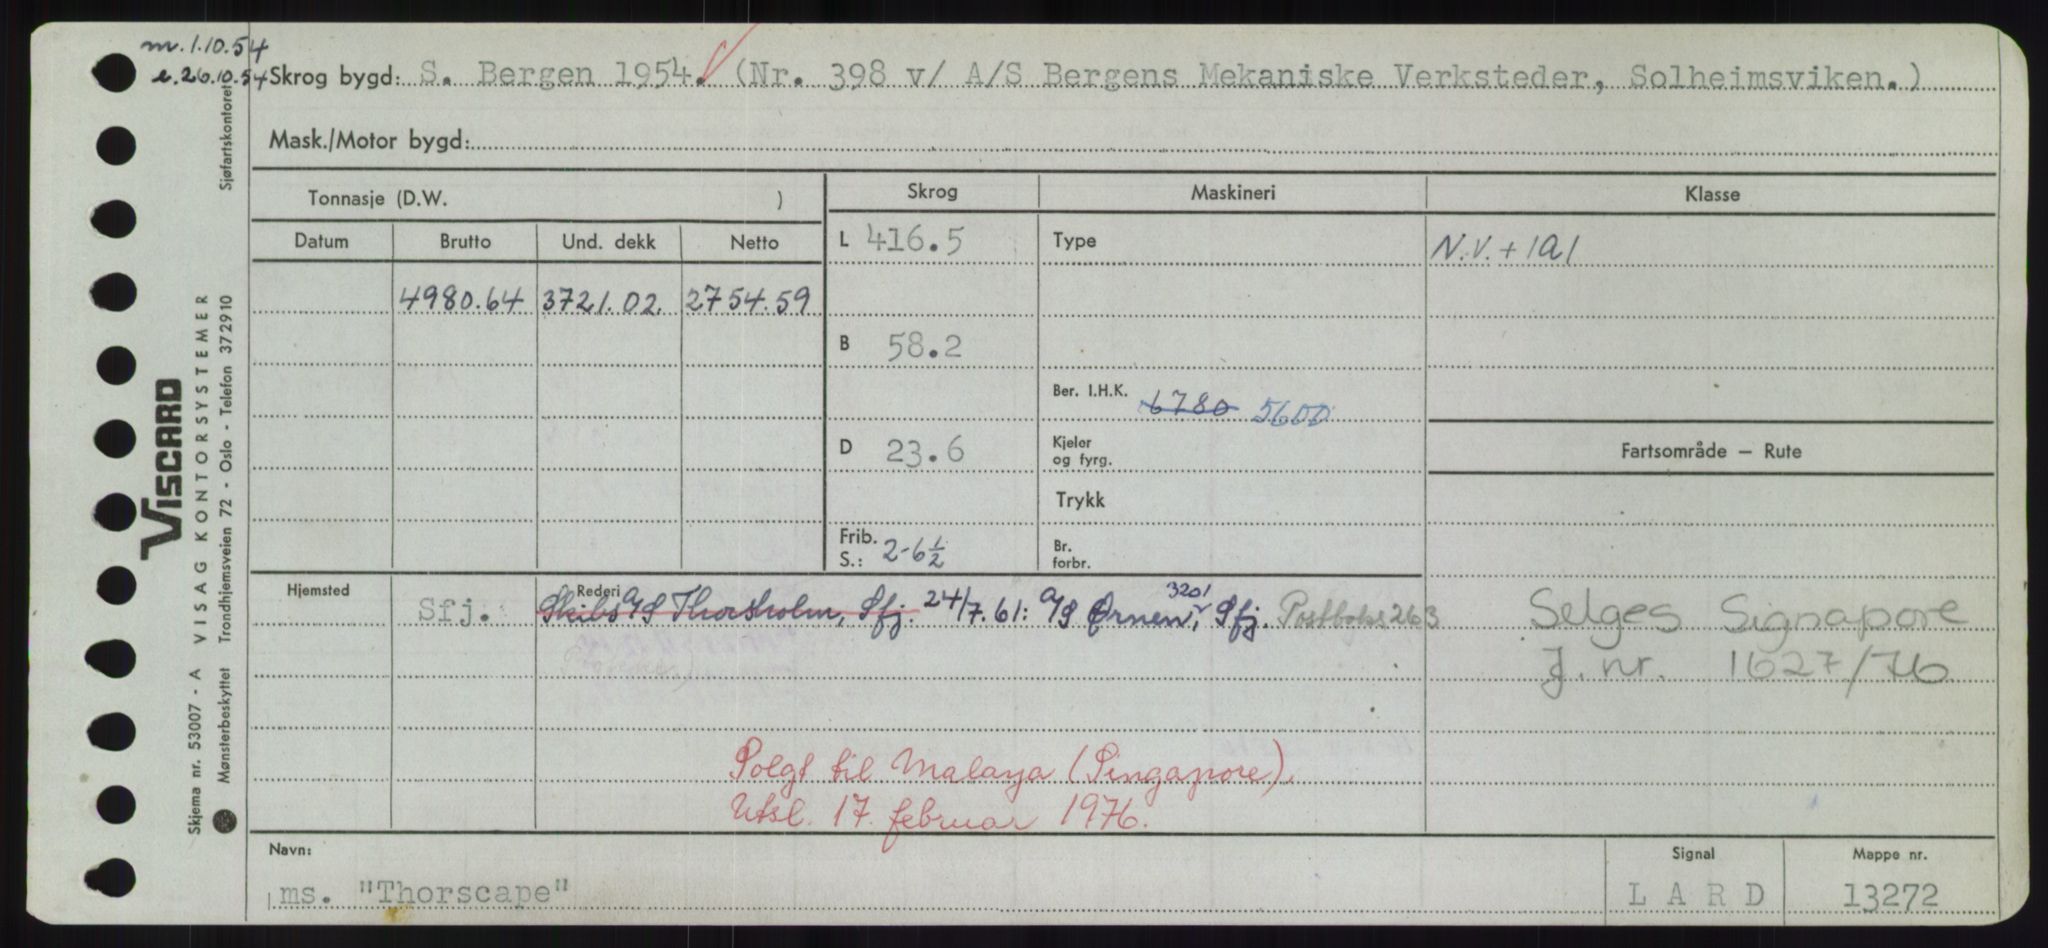 m. 1.10.54
e. 26.10.54
Skrog bygd: S. Bergen 1954. (Nr. 398 v/ A/S Bergens Mekaniske Verksteder, Solheimsviken.)
Mask./Motor bygd:
Tonnasje (D.W. )
Skrog Maskineri Klasse
Datum Brutto Und. dekk Netto
L 416.5 Type N.V. + 1A1
4980.64 3721.02. 2754.59
B 58.2
Ber. I.H.K. 6780 5600
D 23.6 Kjeler og fyrg.
Fartsområde — Rute
Trykk
Frib. S.: 2-6½ Br. forbr.
Hjemsted Rederi
3201
Sfj. Skibs A/S Thorsholm, Sfj. 24/7.61: A/S Ørnen, Sfj. Postboks 263
Selges Signapore
J. nr. 1627/76
Solgt til Malaya (Singapore).
Utsl. 17. februar 1976.
Navn: Signal Mappe nr.
ms. "Thorscape" L A R D 13272
Sjøfartskontoret
VISCARD
VISAG KONTORSYSTEMER
Trondhjemsveien 72 - Oslo - Telefon 372910
Skjema nr. 53007 - A
Mønsterbeskyttet